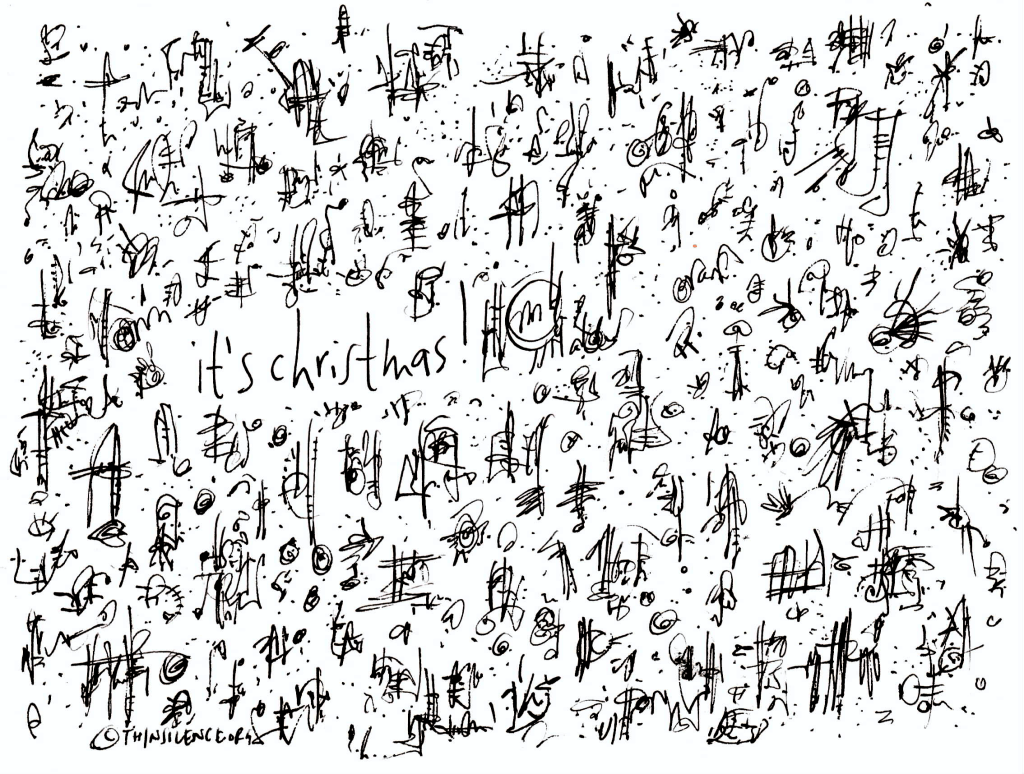 it's christmas!
m
© THINSILENCE.ORG